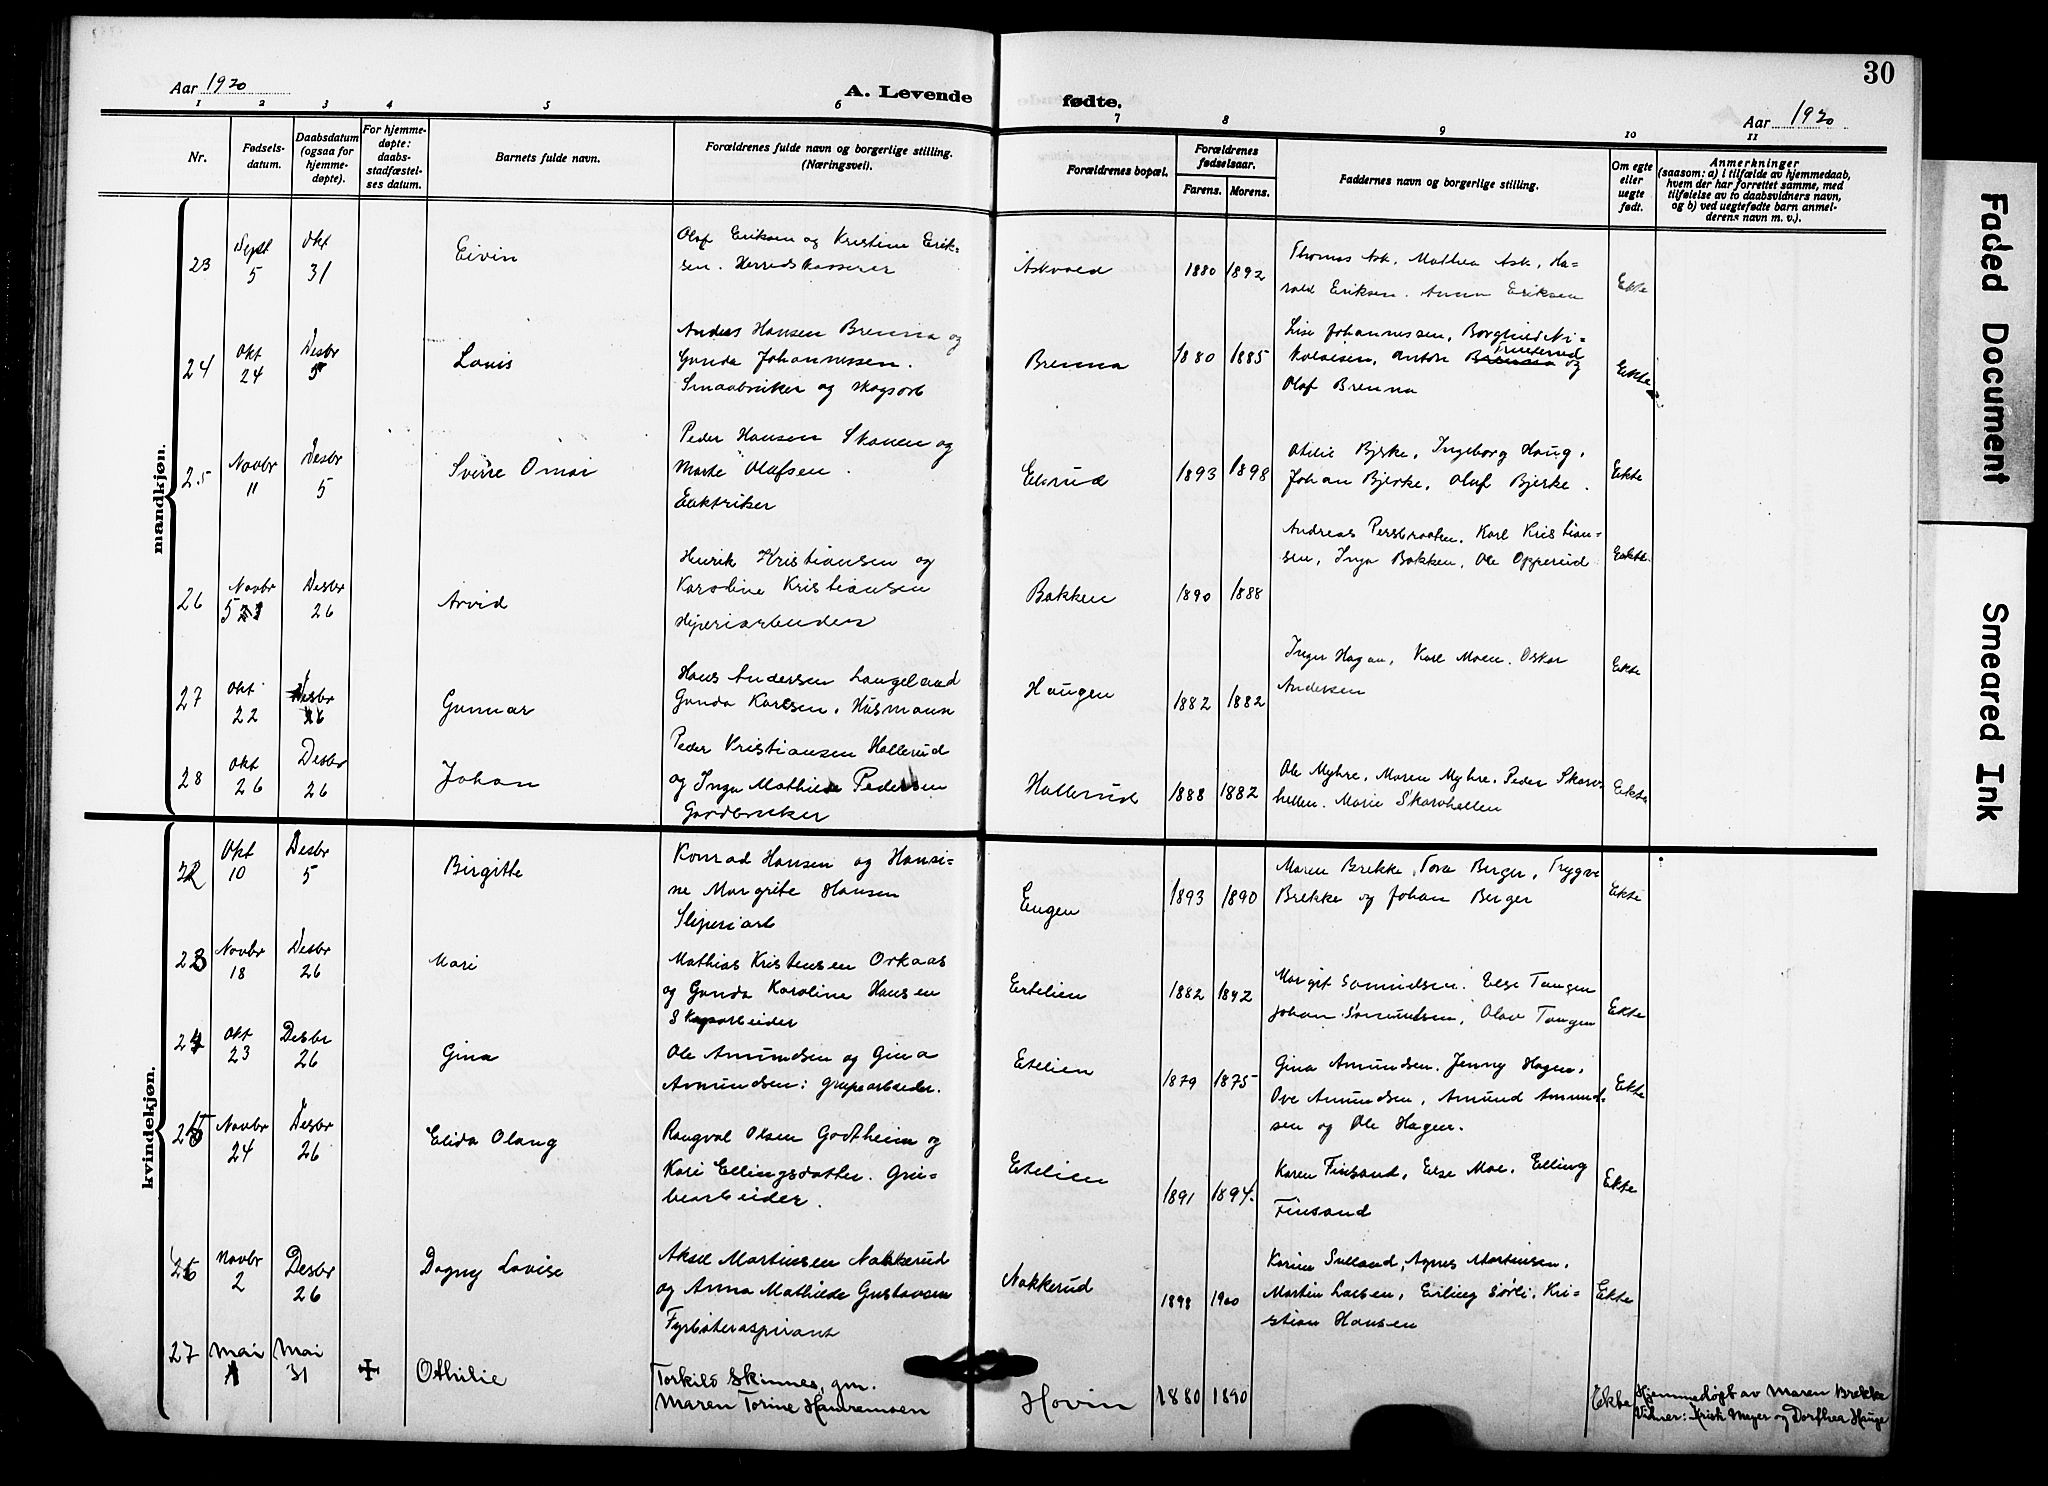 30
Aar 1920
A. Levende
fødte.
Aar 1920
1 2 3 4 5 6 7 8 9 10 11
Nr.
Fødsels-
datum.
Daabsdatum
(ogsaa for
hjemme-
døpte).
For hjemme-
døpte:
daabs-
stadfæstel-
ses datum.
Barnets fulde navn.
Forældrenes fulde navn og borgerlige stilling.
(Næringsvei).
Forældrenes bopæl.
Forældrenes
fødselsaar.
Farens. Morens.
Faddernes navn og borgerlige stilling.
Om egte
eller
uegte
født.
Anmerkninger
(saasom: a) i tilfælde av hjemmedaab,
hvem der har forrettet samme, med
tilføielse av to daabsvidners navn,
og b) ved uegtefødte barn anmel-
derens navn m. v.).
mandkjøn.
23 Sept 5 Okt 31 Eivin
Olaf Eriksen og Kristine Erik-
sen. Herredskasserer
Askvold 1880 1892
Thomas Ask, Mathea Ask, Ha-
rald Eriksen. Anna Eriksen
Ekte
24 Okt 24 Desbr 5 Louis
Anders Hansen Brenna og
Gunda Johannessen.
Smaabruker og skogsarb
Brenna 1880 1885
Lise Johannessen, Borghild Ni-
kolaisen, Anton Brenna og
Olaf Brenna
Ekte
25 Novbr 11 Desbr 5 Sverre Omar
Peder Hansen Skauen og
Marte Olafsen.
Elektriker
Elsrud 1893 1898
Otilie Bjerke, Ingeborg Haug,
Johan Bjerke, Olaf Bjerke.
Ekte
26 Novbr 5 Desbr 26 Arvid
Henrik Kristiansen og
Karoline Kristiansen
Sliperiarbeider
Bakken 1890 1888
Andreas Persbraaten, Karl Kristian-
sen, Inga Bakken, Ole Opperud
Ekte
27 Okt 22 Desbr 26 Gunnar
Hans Andersen Langeland
Gunda Karlsen, Husmann
Haugen 1882 1882
Inger Hagan, Karl Moen, Oskar
Andersen
Ekte
28 Okt 26 Desbr 26 Johan
Peder Kristiansen Hallerud
og Inga Mathilde Pedersen
Gardbruker
Hallerud 1888 1882
Ole Myhre, Maren Myhre, Peder Skarv-
hellen. Marie Skarvhellen
Ekte
kvindekjøn.
22 Okt 10 Desbr 5 Birgitte
Konrad Hansen og Hansi-
ne Margrite Hansen
Sliperiarb
Engen 1893 1890
Maren Brekke, Tora Berger, Trygve
Brekke og Johan Berger
Ekte
23 Novbr 18 Desbr 26 Mari
Mathias Kristensen Orkaas
og Gunda Karoline Hansen
Skogsarbeider
Ertelien 1882 1892
Margit Samuelsen, Else Tangen
Johan Samuelsen, Olav Tangen
Ekte
24 Okt 23 Desbr 26 Gina
Ole Amundsen og Gina
Amundsen: grubearbeider.
Etelien 1879 1875
Gina Amundsen. Jenny Hagen,
Ove Amundsen, Amund Amund-
sen og Ole Hagen.
Ekte
25 Novbr 24 Desbr 26 Elida Olaug
Rangval Olsen Godtheim og
Kari Ellingsdatter. Gru-
bearbeider.
Etelien 1891 1894.
Karen Finsand, Else Moe, Elling
Finsand
Ekte
26 Novbr 2 Desbr 26 Dagny Lovise
Aksel Martinsen Nakkerud
og Anna Mathilde Gustavsen
Fyrbøteraspirant
Nakkerud 1898 1900
Karen Agnes Martinsen,
Martin Larsen, Erling Sørli, Kri-
stian Hansen
Ekte
27 Mai 1 Mai 31 Othilie
Torkild Skinnes, gm.
Maren Torine Hamremoen
Hovin 1880 1890
Ekte
Hjemmedøpt av Maren Brekke
Vidner: Krist Meyer og Dorthea Hauge
Faded Document
Smeared Ink